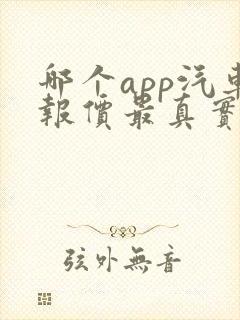 那个app汽車
報價最真實
弦外無音